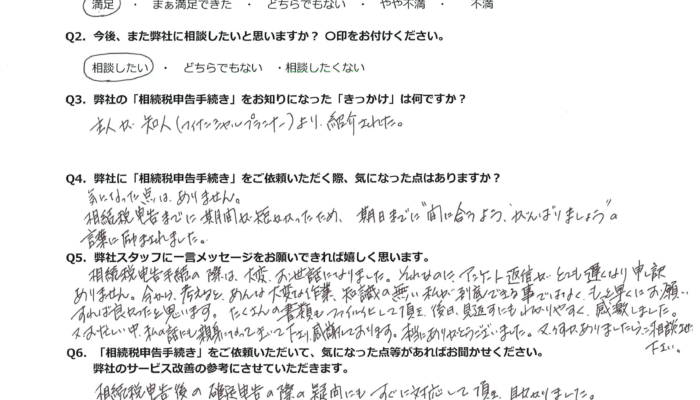 満足 ・ まぁ満足できた ・ どちらでもない ・ やや不満 ・ 不満
Q2. 今後、また弊社に相談したいと思いますか？ 〇印をお付けください。
相談したい ・ どちらでもない ・相談したくない
Q3. 弊社の「相続税申告手続き」をお知りになった「きっかけ」は何ですか？
主人が 知人(ファイナンシャルプランナー)より、紹介された。
Q4. 弊社に「相続税申告手続き」をご依頼いただく際、気になった点はありますか？
気になった点は、ありません。
相続税申告までに期間が短かかったため、期日までに"間に合うよう、がんばりましょう"の
言葉に励まされました。
Q5. 弊社スタッフに一言メッセージをお願いできれば嬉しく思います。
相続税申告手続の際は、大変、お世話になりました。それなのに、アンケート返信が、とても遅くなり申し訳
ありません。今から、考えると、あんな大変な作業、知識の無い私が到底できる事ではなく、もっと早くにお願い
すれば良かったと思います。たくさんの書類もファイルして頂き、後日、見返すにもわかりやすく、感激しました。
又お忙しい中、私の話にも親身になって下さり、感謝しております。本当にありがとうございました。又、何かありましたらご相談させて
下さい。
Q6. 「相続税申告手続き」をご依頼いただいて、気になった点等があればお聞かせください。
弊社のサービス改善の参考にさせていただきます。
相続税申告後の確定申告の際の疑問にもすぐに対応して頂き、助かりました。